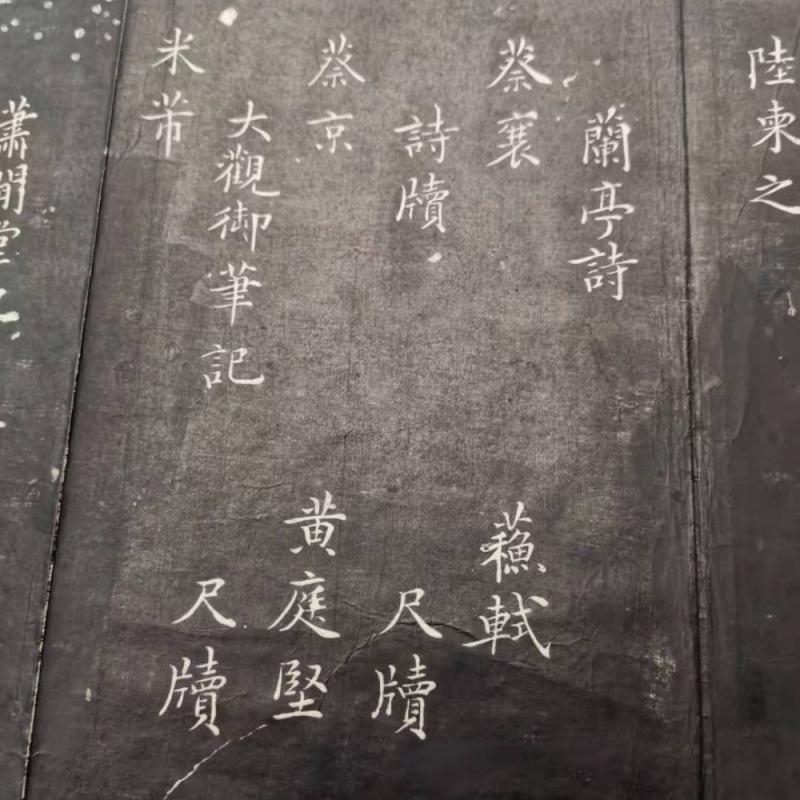 陸柬之
蘭亭詩
蔡襄
詩牘
蘓軾
尺牘
蔡京
大觀御筆記
黄庭堅
尺牘
米芾
蕭閒堂